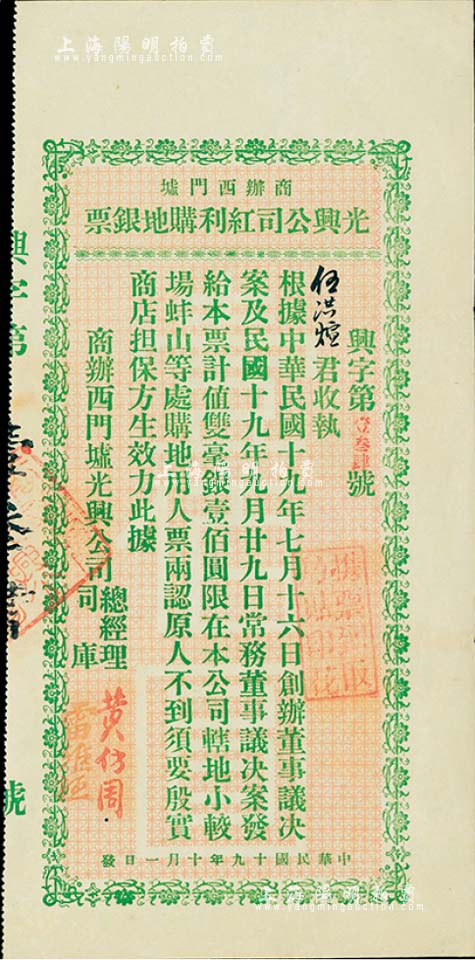 上海陽明拍賣
www.yangmingauction.com
商辦西門墟
光興公司紅利購地銀票
興字第壹叁肆號
伍洪煊君收執
根據中華民國十九年七月十六日創辦董事議决
案及民國十九年九月廿九日常務董事議决案發
給本票計值雙毫銀壹佰圓限在本公司轄地小較
場蚌山等處購地用人票兩認原人不到須要殷實
商店担保方生效力此據
商辦西門墟光興公司
總經理 黃仿周
司庫
中華民國十九年十月一日發
興字第
號
上海陽明拍賣
www.yangmingauction.com
上海陽明拍賣
www.yangmingauction.com